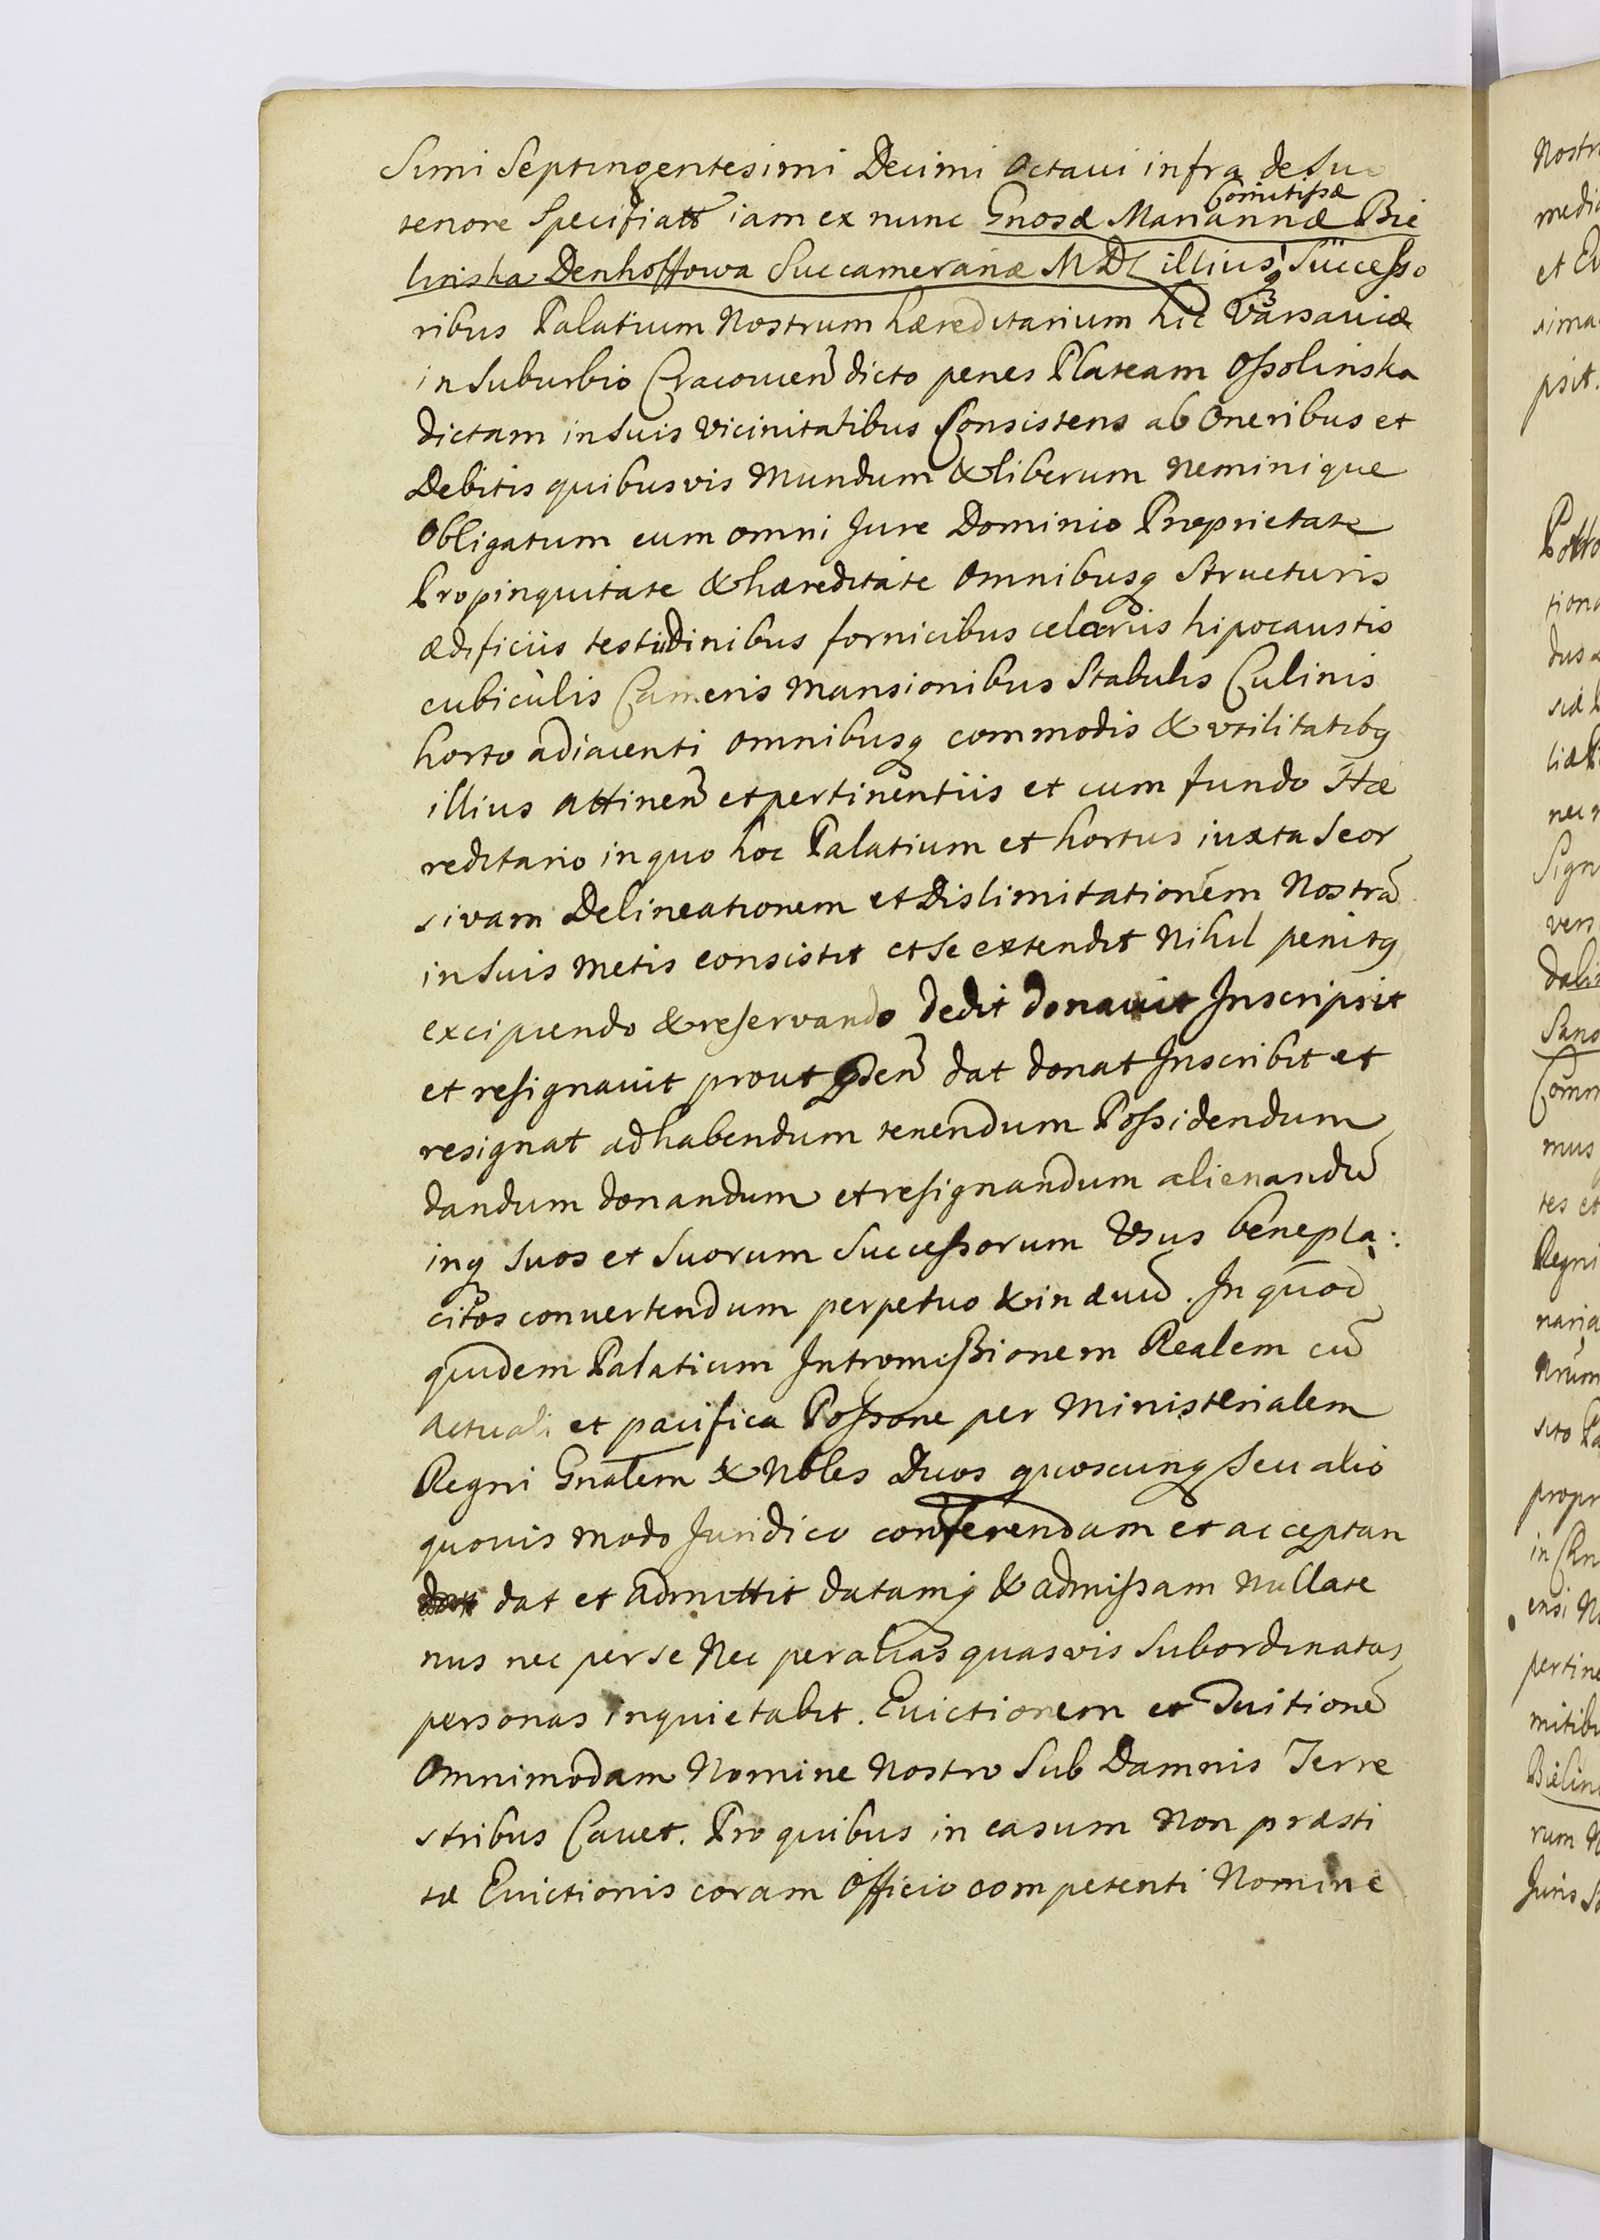 simi Septingentesimi Decimi Octaui infra de Suo
Comitissæ
tenore Specifiatt iam ex nunc Gnosæ Mariannæ Bie
linska Denhoffowa Succameranæ MDL illiusq Successo
ribus Palatium Nostrum hæreditarium hic Varsauiæ
in Suburbio Cracouien̄ dicto penes Plateam Ossolinska
dictam in Suis Vicinitatibus Consistens ab Oneribus et
Debitis quibusvis Mundum & liberum Neminique
Obligatum cum omni Jure Dominio Proprietate
Propinquitate & hæreditate Omnibusq Structuris
ædificiis testudinibus fornicibus celariis hipocaustis
cubiculis Cameris Mansionibus Stabulis Culinis
horto adiacenti omnibusq commodis & vtilitatibq
illius attinen̄ et pertinentiis et cum fundo Hæ
reditario in quo hoc Palatium et hortus iuxta Seor
sivam Delineationem et Dislimitationem Nostrā
in Suis Metis consistit et Se extendit Nihil penitq
excipiendo & reservando dedit donauit Inscripsit
et resignauit prout dat donat Inscribit et
resignat ad habendum tenendum Possidendum
dandum donandum et resignandum alienandū
inq Suos et Suorum Successorum Usus benepla:
citos convertendum perpetuo & in æuū. In quod
quidem Palatium Intromissionem Realem cū
actuali et pacifica Possone per Ministerialem
Regni Gnalem & Nbles Duos quoscunq Seu alio
quouis modo Juridico conferendam et acceptan
dat et admittit datamq & admissam Nullate
nus nec per se Nec per alias quasvis Subordinatas
personas inquietabit. Euictionem et Tuitionē
Omnimodam Nomine Nostro Sub Damnis Terre
stribus Cauet. Pro quibus in casum Non præsti
tæ Euictionis coram Officio competenti Nomine
Nostr
medi
et Eu
sima
psit.
tion
dus
nec n
Sign
vers
Sano
Comm
mus
tes et
Regni
naria
Nrum
sito Pa
propr
ensi No
pertine
mitibu
Bielin
rum No
Juris So